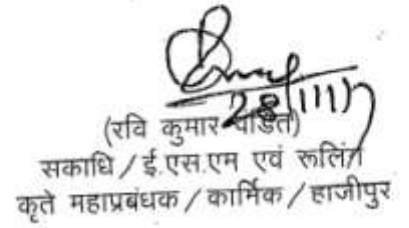 28/11/17
(रवि कुमार पंडित)
सकाधि / ई.एस.एम एवं रूलिंग
कृते महाप्रबंधक / कार्मिक / हाजीपुर